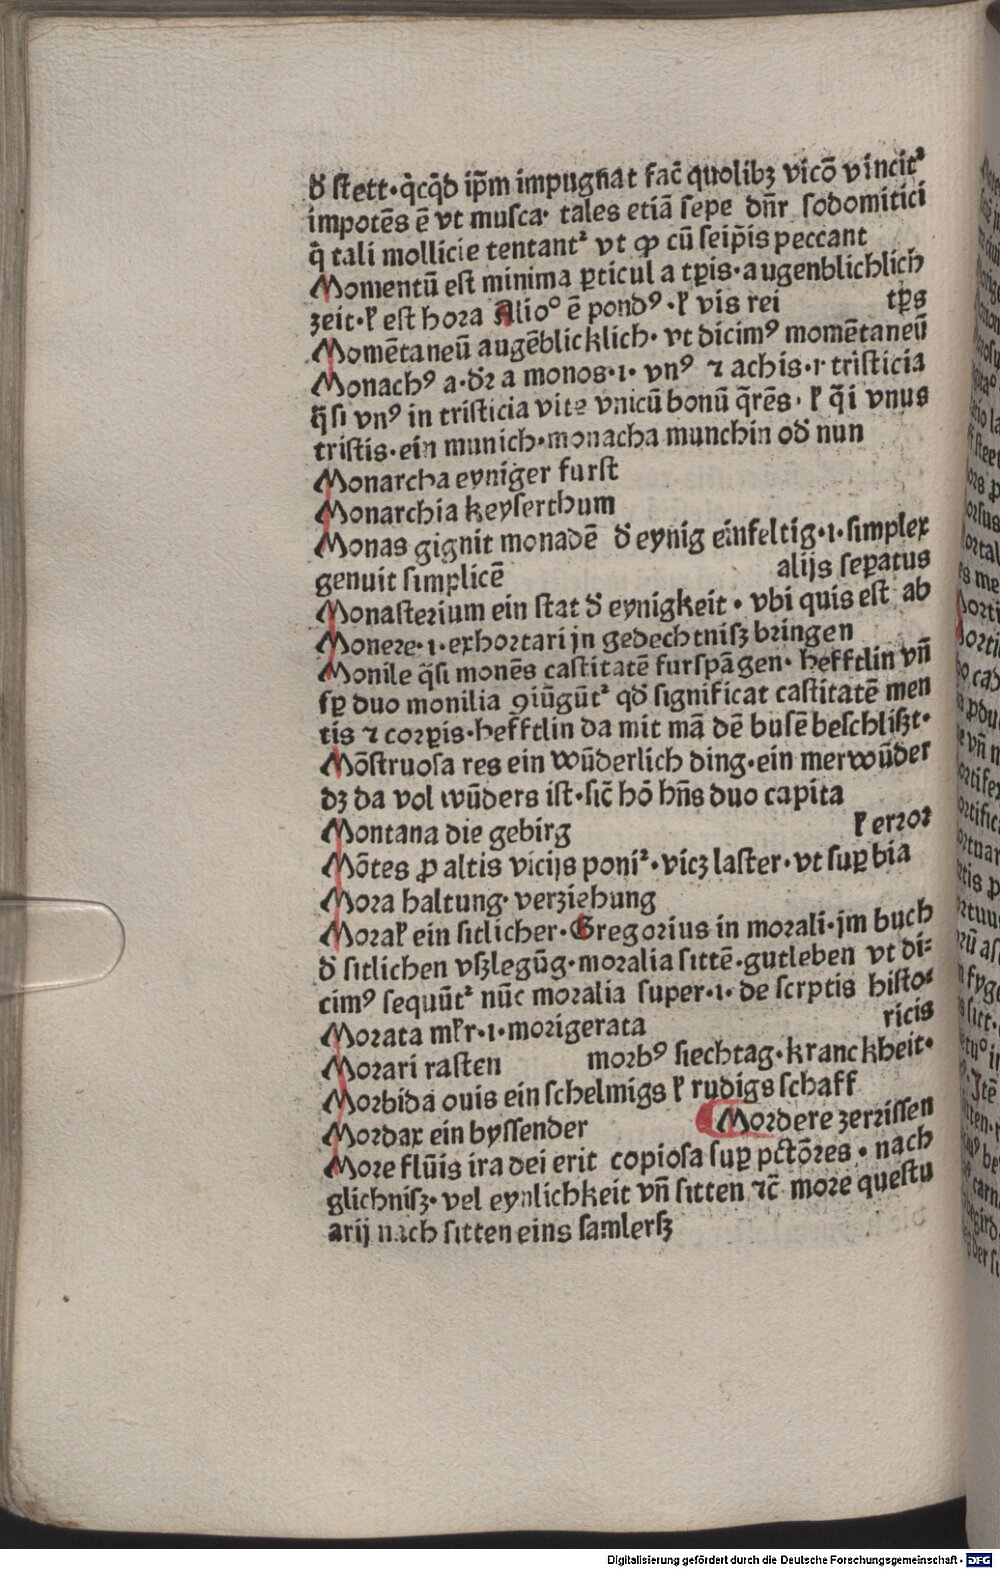 đ stett·q̇cq̄d ip̄m impugnat fac̄ quolibꝫ vicō vincit᷑
impotēs ē vt musca· tales etiā sepe dn̄r sodomitici
q̄ tali mollicie tentant᷑ vt ꝙ cū seip̄is peccant
Momentū est minima ꝑticula tꝑis·augenblichlich
zeit·ꝉ est hora Alio° ē pondꝰ·ꝉ vis rei tꝑs
Momētaneū augēblicklich· vt dicimꝰ momētaneū
Monachꝰ a·dr̄ a monos·i· vnꝰ ⁊ achis·i· tristicia
q̄si vnꝰ in tristicia vite vnicū bonū q̄rēs· ꝉ q̄i vnus
tristis·ein munich·monacha munchin od̄ nun
Monarcha eyniger furst
Monarchia keyserthum
Monas gignit monadē đ eynig einfeltig·i·simplex
genuit simplicē alijs seꝑatus
Monasterium ein stat đ eynigkeit· vbi quis est ab
Monere·i·exhortari jn gedechtnisz bringen
Monile q̄si monēs castitatē furspāgen· hefftlin vn̄
sꝑ duo monilia ꝯiūgūt᷑ qđ significat castitatē men
tis ⁊ corꝑis·hefftlin da mit mā dē busē beschliszt·
Mōstruosa res ein wūderlich ding·ein merwūder
dꝫ da vol wūders ist·sic̄ hō hn̄s duo capita
Montana die gebirg ꝉ error
Mōtes ꝓ altis vicijs poni᷑·vicꝫ laster·vt suꝑbia
Mora haltung· verziehung
Moraꝉ ein sitlicher·Gregorius in morali·jm buch
đ sitlichen vszlegūg·moralia sittē·gutleben vt di⸗
cimꝰ sequūt᷑ nūc moralia super·i·de scrptis histo⸗
Morata mꝉr·i·morigerata ricis
Morari rasten morbꝰ siechtag·kranckheit·
Morbida ouis ein schelmigs ꝉ rudigs schaff
Mordax ein byssender Mordere zerrissen
More flūis ira dei erit copiosa suꝑ pctōres·nach
glichnisz·vel eynlichkeit vn̄ sitten ⁊c̄ more questu
arij nach sitten eins samlersz
Digitalisierung gefördert durch die Deutsche Forschungsgemeinschaft - DFG